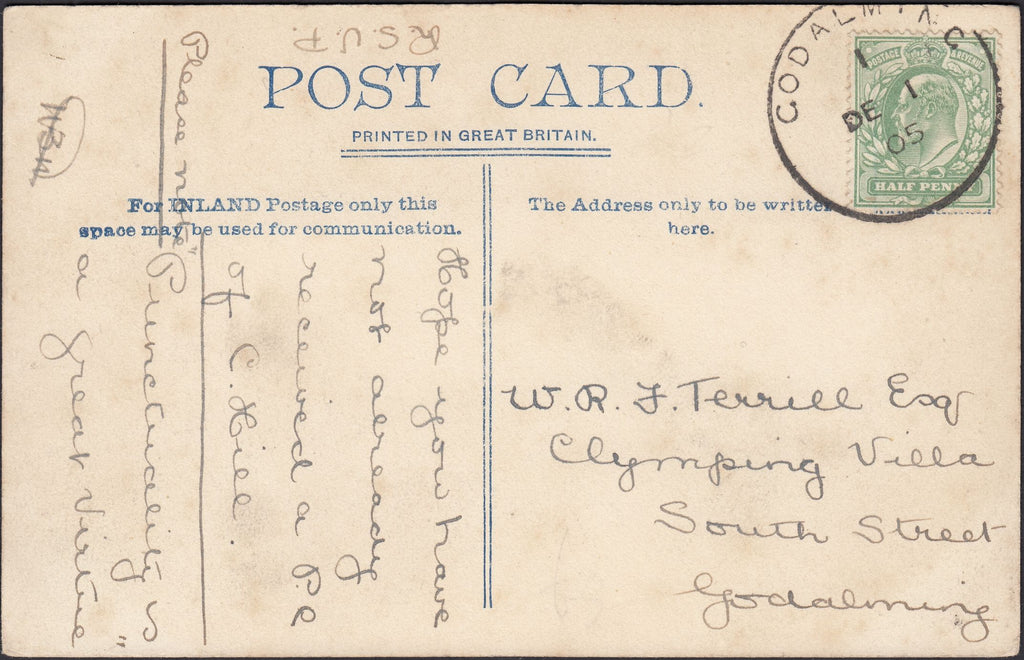 R.S.V.P.
POST CARD.
PRINTED IN GREAT BRITAIN.
For INLAND Postage only this
space may be used for communication.
The Address only to be written
here.
GODALMING
1
DE 1
05
POSTAGE REVENUE
HALF PENNY
Hope you have
not already
received a P.C
of C. Hill.
Please note
"Punctuality is
a great virtue"
W. R. F. Terrill Esq
Clymping Villa
South Street
Godalming